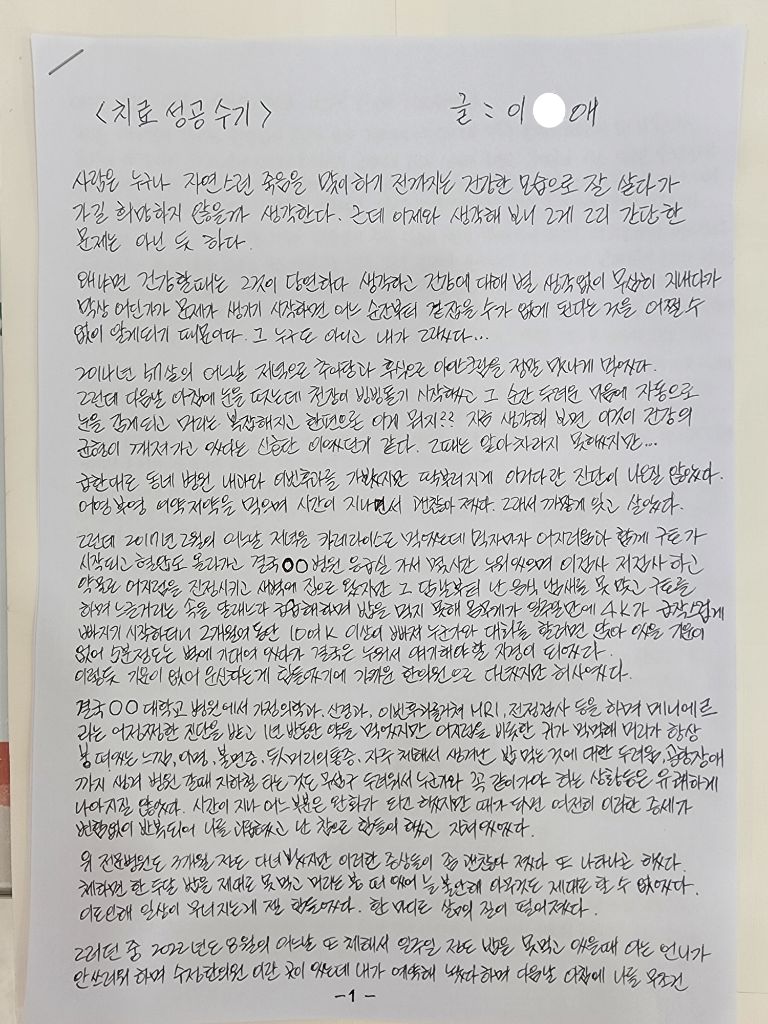 <치료 성공 수기> 글 : 이 애
사람은 누구나 자연스런 죽음을 맞이하기 전까지는 건강한 모습으로 잘 살다가
가길 희망하지 않을까 생각한다. 근데 이제와 생각해 보니 그게 그리 간단한
문제는 아닌 듯 하다.
왜냐면 건강할때는 그것이 당연하다 생각하고 건강에 대해 별 생각없이 무심히 지내다가
막상 어딘가가 문제가 생기기 시작하면 어느 순간부터 겉잡을 수가 없게 된다는 것을 어쩔 수
없이 알게되기 때문이다. 그 누구도 아니고 내가 그랬다...
살의 어느날 저녁으로 후식으로 아이스크림을 정말 맛나게 먹었다.
그런데 다음날 아침에 눈을 떴는데 천장이 빙빙돌기 시작했고 그 순간 두려운 마음에 자동으로
눈을 감게되고 머리는 복잡해지고 한편으론 이게 뭐지?? 지금 생각해 보면 이것이 건강의
균형이 깨져가고 있다는 신호탄 이었던거 같다. 그때는 알아차리지 못했지만...
급한대로 동네 병원 내과와 이빈후과를 가봤지만 딱부러지게 이거다란 진단이 나오질 않았다.
어영부영 이약저약을 먹으며 시간이 지나면서 괜찮아졌다. 그래서 까맣게 잊고 살았다.
그런데 2017년 2월의 어느날 저녁을 카레라이스로 먹었는데 먹자마자 어지러움과 함께 구토가
시작되고 혈압도 올라가고 결국 〇〇병원 응급실 가서 몇시간 누워있으며 이검사 저검사 하고
약물로 어지럼을 진정시키고 새벽에 집으로 왔지만 그 다음날부터 난 음식 냄새를 못 맡고 구토를
하며 느글거리는 속을 달래느라 급급해하며 밥을 먹지 못해 몸무게가 일주일만에 4K가 급작스럽게
빠지기 시작하더니 2개월의 동안 10여K 이상이 빠져 누군가와 대화를 할려면 앉아 있을 기운이
없어 5분정도는 벽에 기대어 있다가 결국은 누워서 얘기해야할 지경이 되었다.
이렇듯 기운이 없어 운신하는게 힘들었기에 가까운 한의원으로 다녔지만 허사였다.
결국 〇〇 대학교 병원에서 가정의학과, 신경과, 이빈후과를거쳐 MRI, 전정검사 등을 하며 메니에르
라는 어정쩡한 진단을 받고 1년 반동안 약을 먹었지만 어지럼을 비롯한 귀가 먹먹해 머리가 항상
붕 떠있는 느낌, 이명, 불면증, 뒷머리의통증, 자주 체해서 생겨난 밥 먹는것에 대한 두려움, 공황장애
까지 생겨 병원 갈때 지하철 타는 것도 무섭구 두려워서 누군가와 꼭 같이가야 하는 상황등은 유쾌하게
나아지질 않았다. 시간이 지나 어느 부분은 완화가 되긴 했지만 때가 되면 여전히 이러한 증세가
변함없이 반복되어 나를 괴롭혔고 난 참으로 힘들어 했고 지쳐있었다.
위 전문병원도 3개월 정도 다녀 봤지만 이러한 증상들이 좀 괜찮아 졌다 또 나타나곤 했다.
체하면 한 두달 밥을 제대로 못먹고 머리는 붕 떠 있어 늘 불안해 아무것도 제대로 할 수 없었다.
이로인해 일상이 무너지는게 젤 힘들었다. 한 마디로 삶의 질이 떨어졌다.
그러던 중 2022년도 8월의 어느날 또 체해서 일주일 정도 밥을 못먹고 있을때 아는 언니가
안쓰러워 하며 수정한의원 이란 곳이 있는데 내가 예약해 놨다하며 다음날 아침에 나를 무조건
-1-